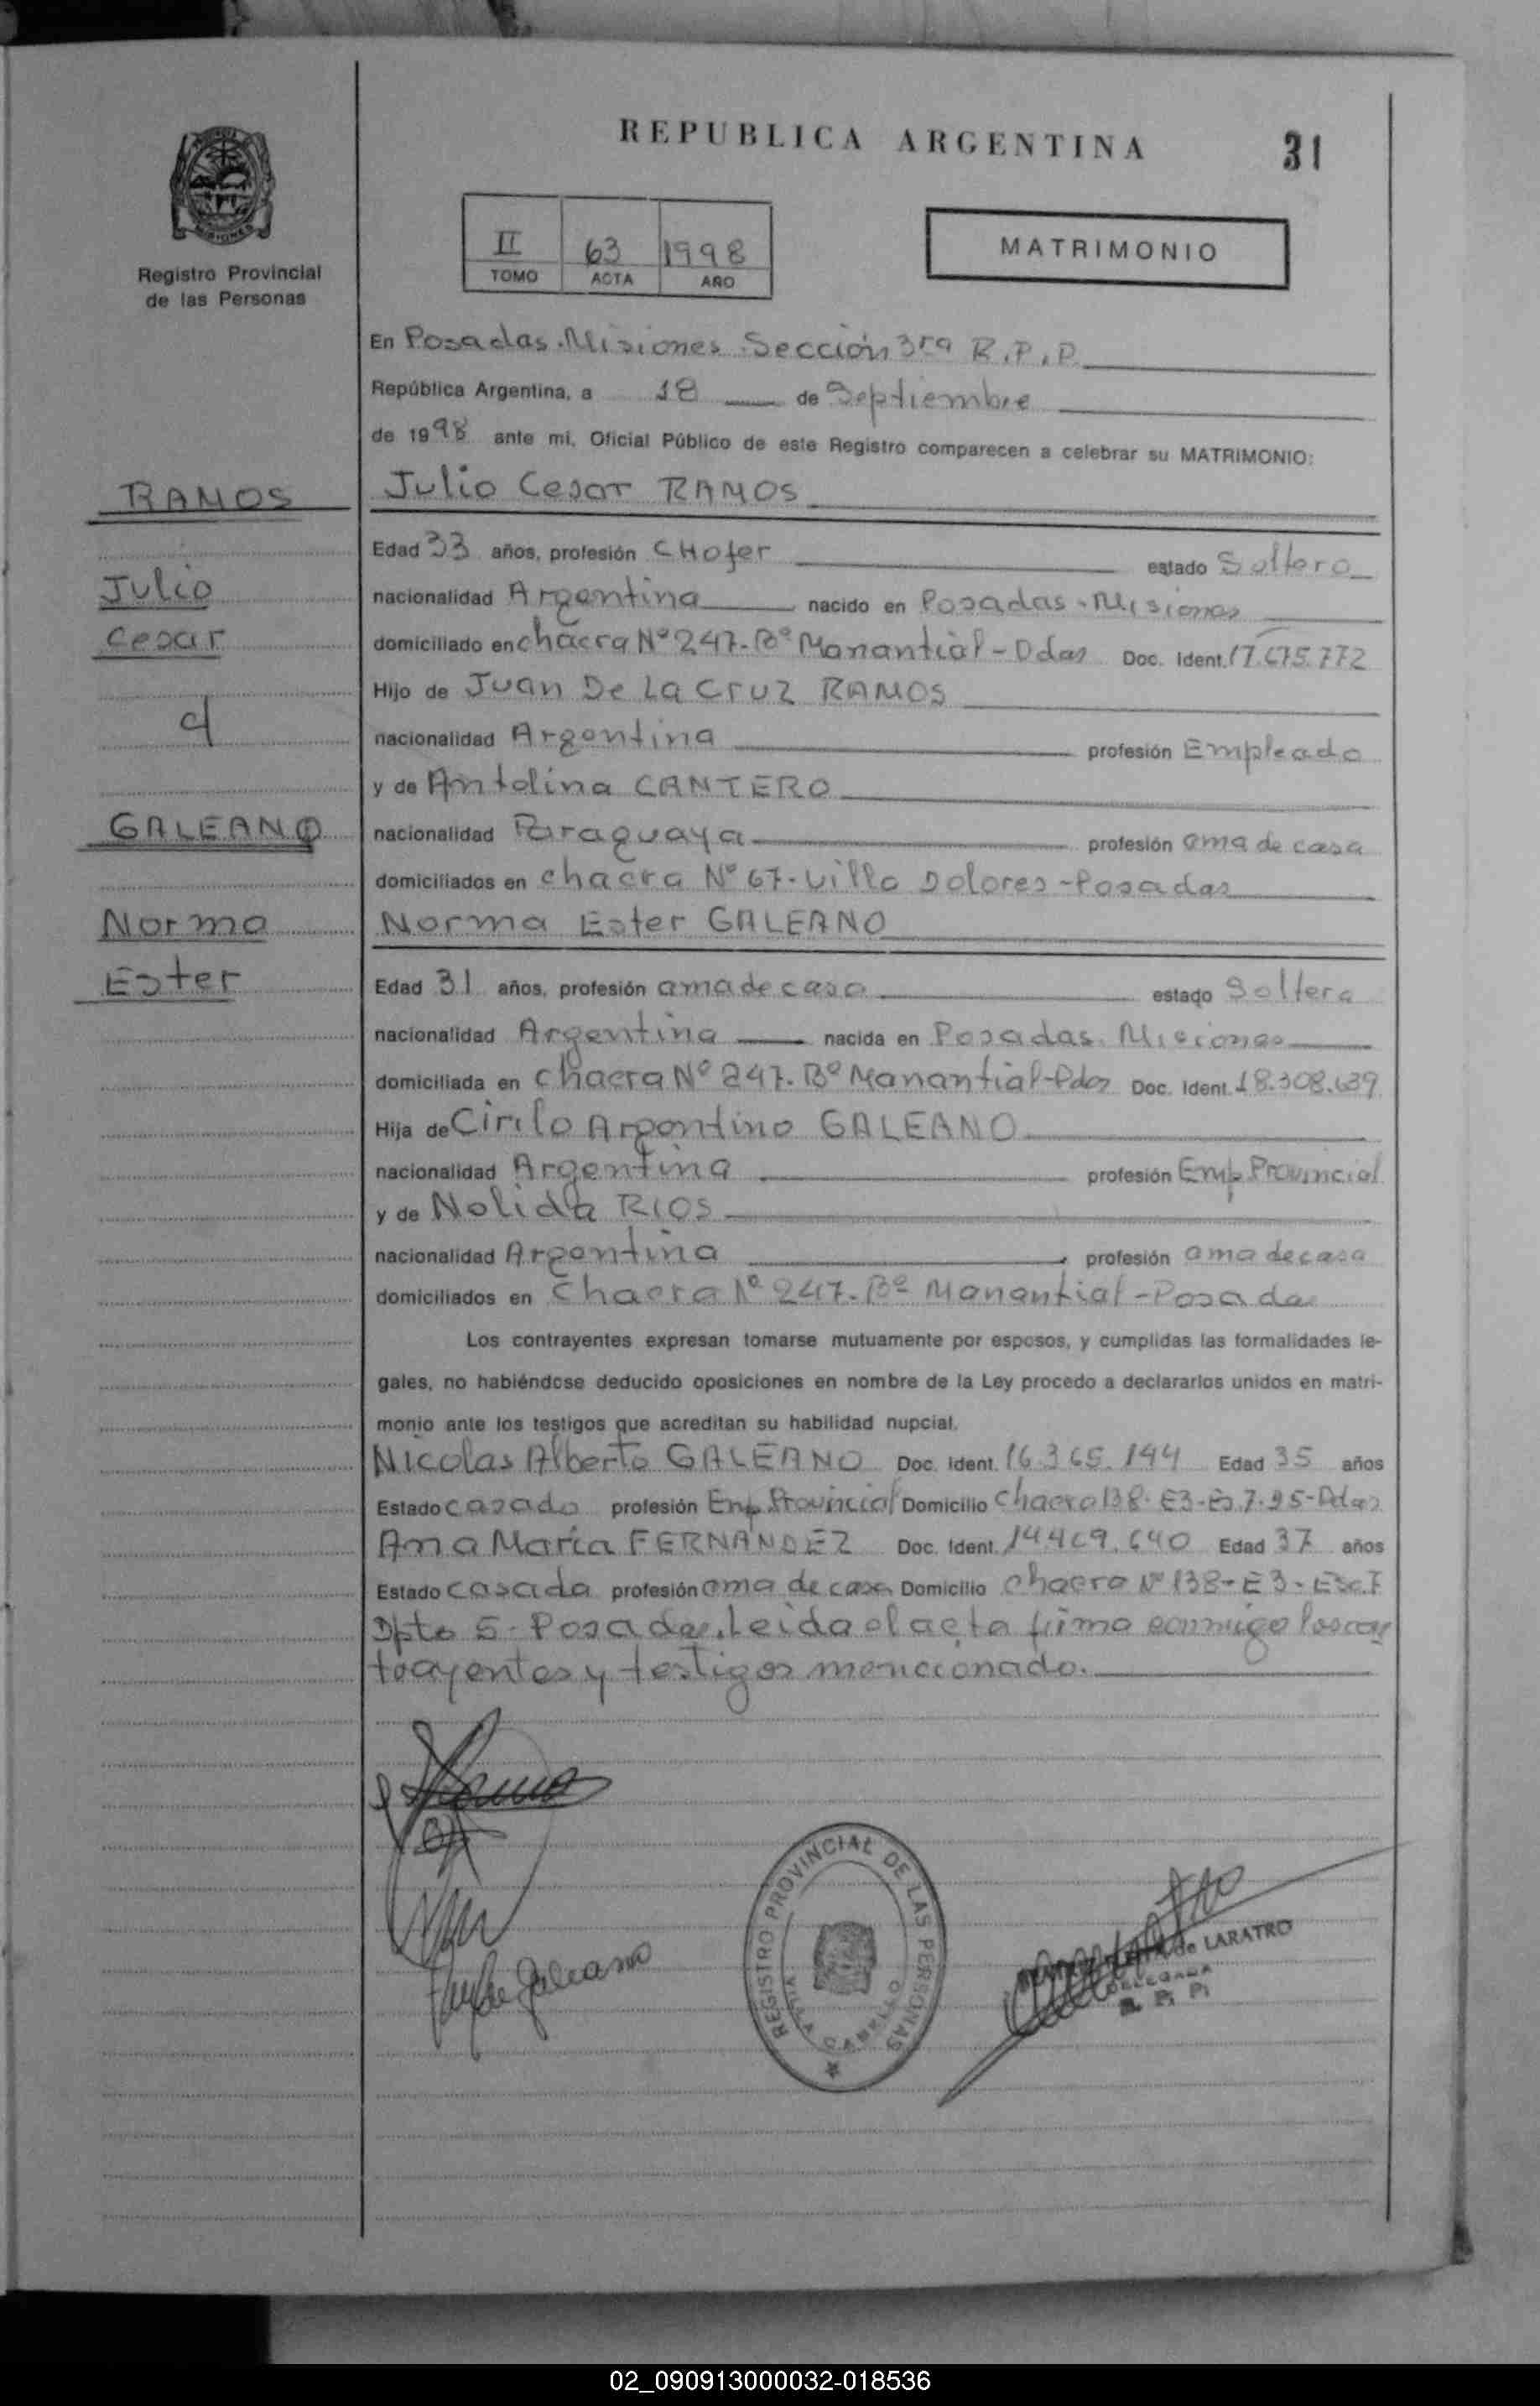 REPUBLICA ARGENTINA
31
Registro Provincial
de las Personas
II 63 1998
TOMO ACTA AÑO
MATRIMONIO
En Posadas. Misiones. Sección 3ra R.P.P.
República Argentina, a 18 de Septiembre
de 1998 ante mi, Oficial Público de este Registro comparecen a celebrar su MATRIMONIO:
RAMOS
Julio Cesar RAMOS
Edad 33 años, profesión CHofer estado Soltero
Julio
nacionalidad Argentina nacido en Posadas - Misiones
Cesar
domiciliado en chacra Nº 247. Bº Manantial - Pdas Doc. Ident. 17.675.772
Hijo de Juan De La Cruz RAMOS
nacionalidad Argentina profesión Empleado
y de Antolina CANTERO
GALEANO
nacionalidad Paraguaya profesión ama de casa
domiciliados en chacra Nº 67. Villa Dolores - Posadas
Norma
Norma Ester GALEANO
Ester
Edad 31 años, profesión ama de casa estado Soltera
nacionalidad Argentina nacida en Posadas. Misiones
domiciliada en chacra Nº 247. Bº Manantial - Pdas Doc. Ident. 18.308.639
Hija de Cirilo Argentino GALEANO
nacionalidad Argentina profesión Emp. Provincial
y de Nolida RIOS
nacionalidad Argentina profesión ama de casa
domiciliados en Chacra Nº 247. Bº Manantial - Posadas
Los contrayentes expresan tomarse mutuamente por esposos, y cumplidas las formalidades le-
gales, no habiéndose deducido oposiciones en nombre de la Ley procedo a declararlos unidos en matri-
monio ante los testigos que acreditan su habilidad nupcial.
Nicolas Alberto GALEANO Doc. Ident. 16.365.144 Edad 35 años
Estado casado profesión Emp. Provincial Domicilio Chacra 138. E3-
Ana María FERNÁNDEZ Doc. Ident. 14.469.640 Edad 37 años
Estado casada profesión ama de casa Domicilio Chacra Nº 138 - E 3 -
Dpto 5 - Posadas. Leida el acta firma conmigo los con
trayentes y testigos mencionado.
REGISTRO PROVINCIAL DE LAS PERSONAS
VILLA CABELLO
de LARATRO
DELEGADA
R. P. P.
02_090913000032-018536